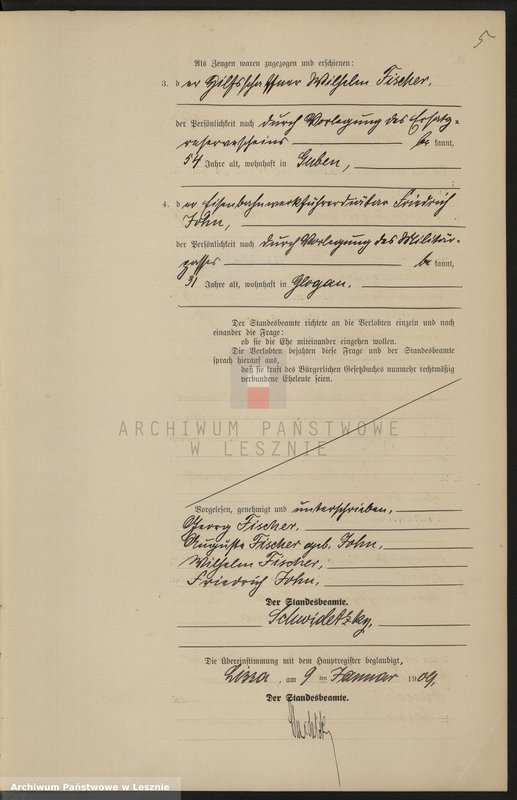 5
Als Zeugen waren zugezogen und erschienen:
3. der Hilfsschaffner Wilhelm Fischer,
der Persönlichkeit nach durch Vorlegung des Ersatz-
reservescheins bekannt,
54 Jahre alt, wohnhaft in Guben,
4. der Eisenbahnwerkführerdiätar Friedrich
John,
der Persönlichkeit nach durch Vorlegung des Militär-
passes bekannt,
31 Jahre alt, wohnhaft in Glogau.
Der Standesbeamte richtete an die Verlobten einzeln und nach
einander die Frage:
ob sie die Ehe miteinander eingehen wollen.
Die Verlobten bejahten diese Frage und der Standesbeamte
sprach hierauf aus,
daß sie kraft des Bürgerlichen Gesetzbuches nunmehr rechtmäßig
verbundene Eheleute seien.
ARCHIWUM PAŃSTWOWE
W LESZNIE
Vorgelesen, genehmigt und unterschrieben,
Georg Fischer,
Auguste Fischer geb. John,
Wilhelm Fischer,
Friedrich John,
Der Standesbeamte.
Schwidetzky,
Die Übereinstimmung mit dem Hauptregister beglaubigt,
Lissa, am 9ten Januar 1909.
Der Standesbeamte.
Archiwum Państwowe w Lesznie